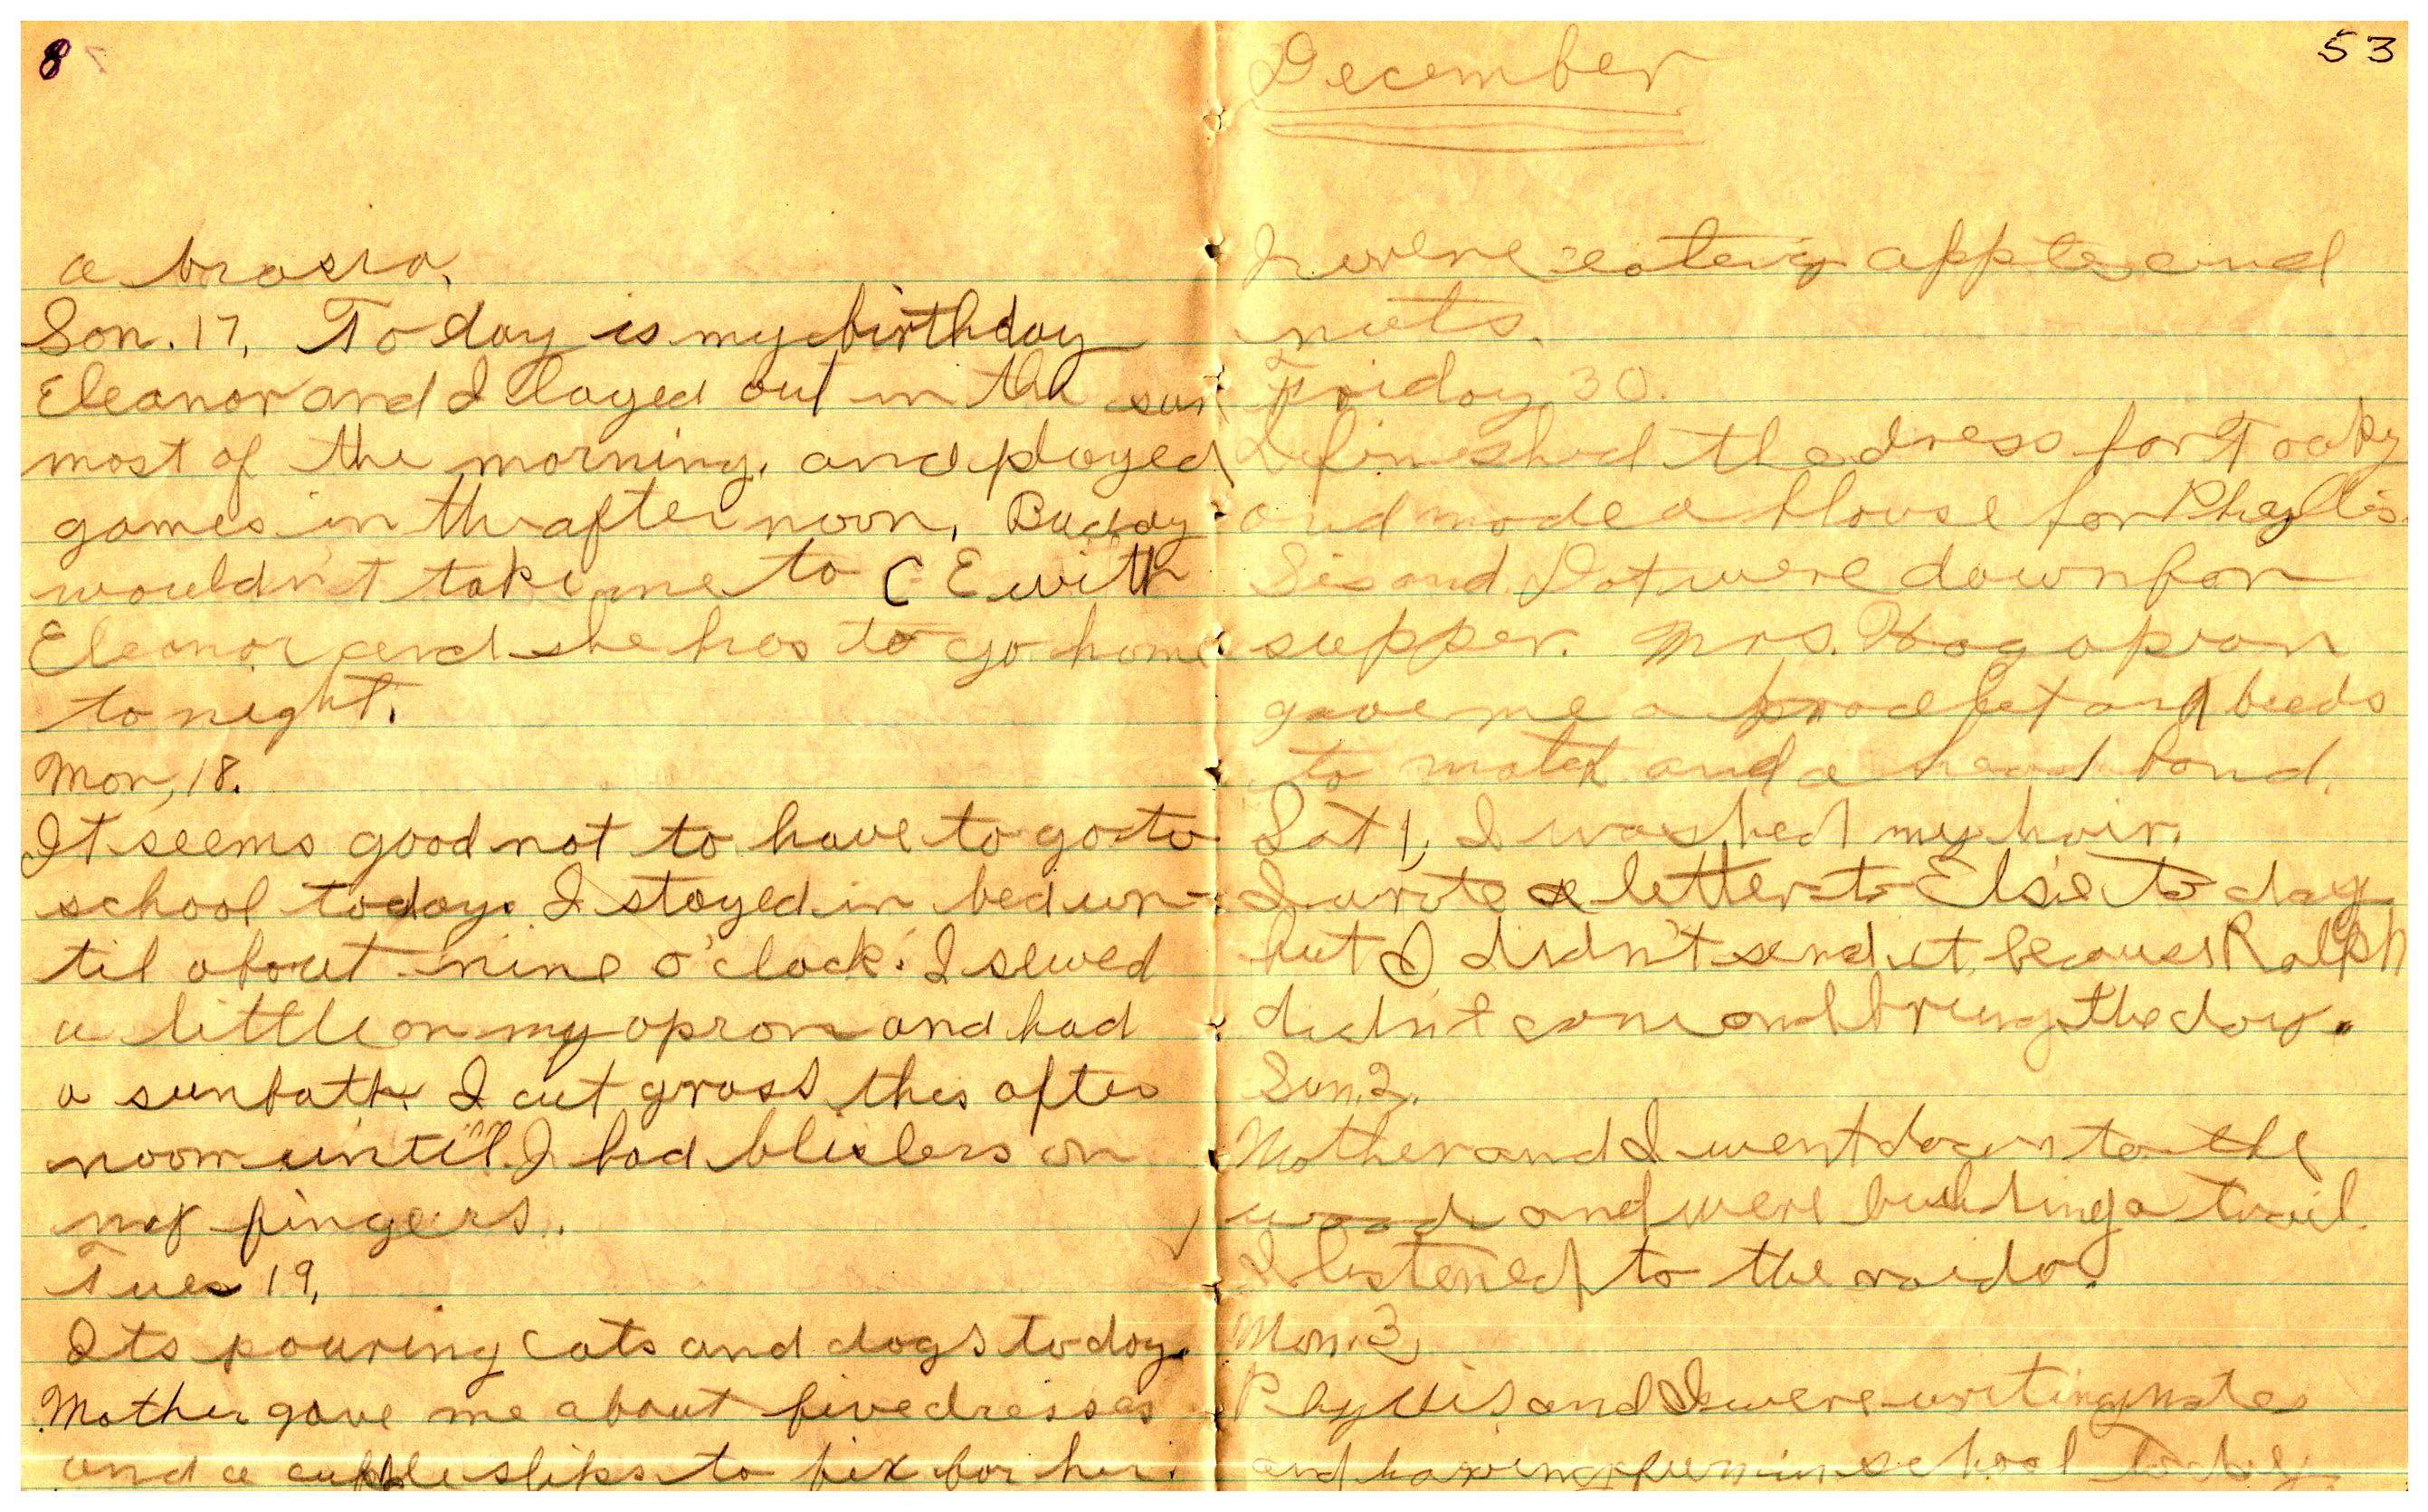 8
a brasra.
Son. 17, To day is my birthday
Eleanor and I layed out in the sun
most of the morning, and played
games in the after noon, Buddy
wouldn't take me to C E with
Eleanor and she has to go home
to night.
Mon, 18.
It seems good not to have to go to
school today. I stayed in bed un-
til about nine o'clock. I sewed
a little on my apron and had
a sunbath. I cut grass this after
noon until I had blisters on
my fingers.
Tues 19,
Its pouring cats and dogs today.
Mother gave me about five dresses
and a cupple slips to fix for her.
53
December
I were eating apples and
nuts.
Friday 30.
I finished the dress for Tooky
and made a blouse for Phyllis.
Sis and Dot were down for
supper. Mrs. Hagopian
gave me a bracelet and beeds
to match and a head band.
Sat 1, I washed my hair.
I wrote a letter to Elsie to day
but I didn't send it because Ralph
didn't come and bring the dog.
Sun. 2.
Mother and I went down to the
woods and were building a trail.
I listened to the raido.
Mon. 3,
Phyllis and I were writing notes
and having fun in school today.